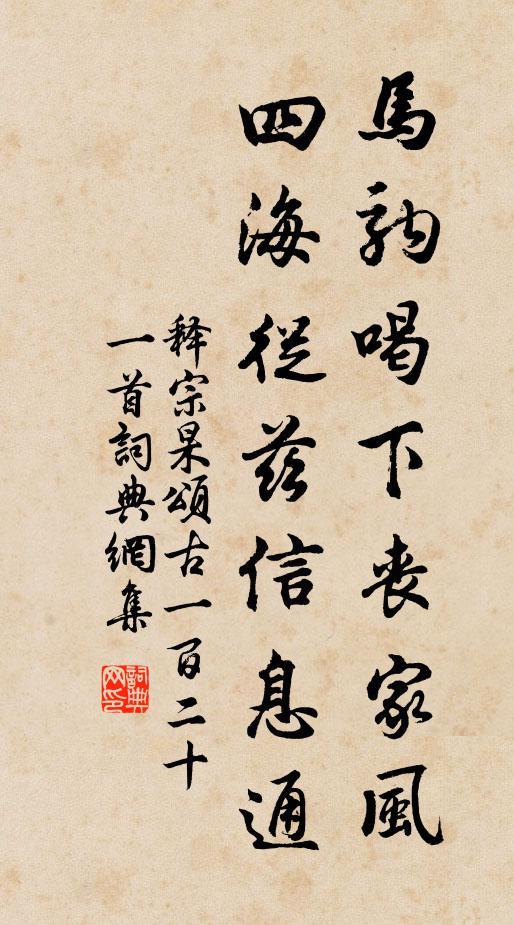 馬駒喝下喪家風
四海從茲信息通
释宗杲頌古一百二十
一首詞典網集
詞典
网印